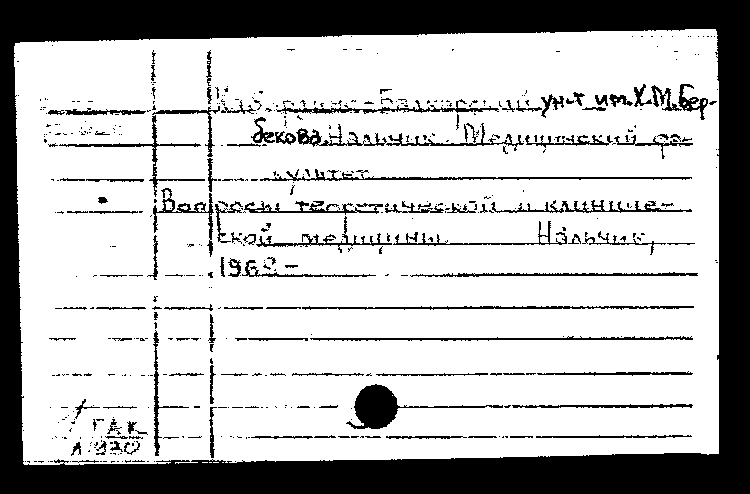 Кабардино-Балкарский ун-т им.Х.М.Бер-
бекова.Нальчик. Медицинский фа-
культет.
Вопросы теоретической и клиниче-
ской медицины. Нальчик,
196 -
ГАК